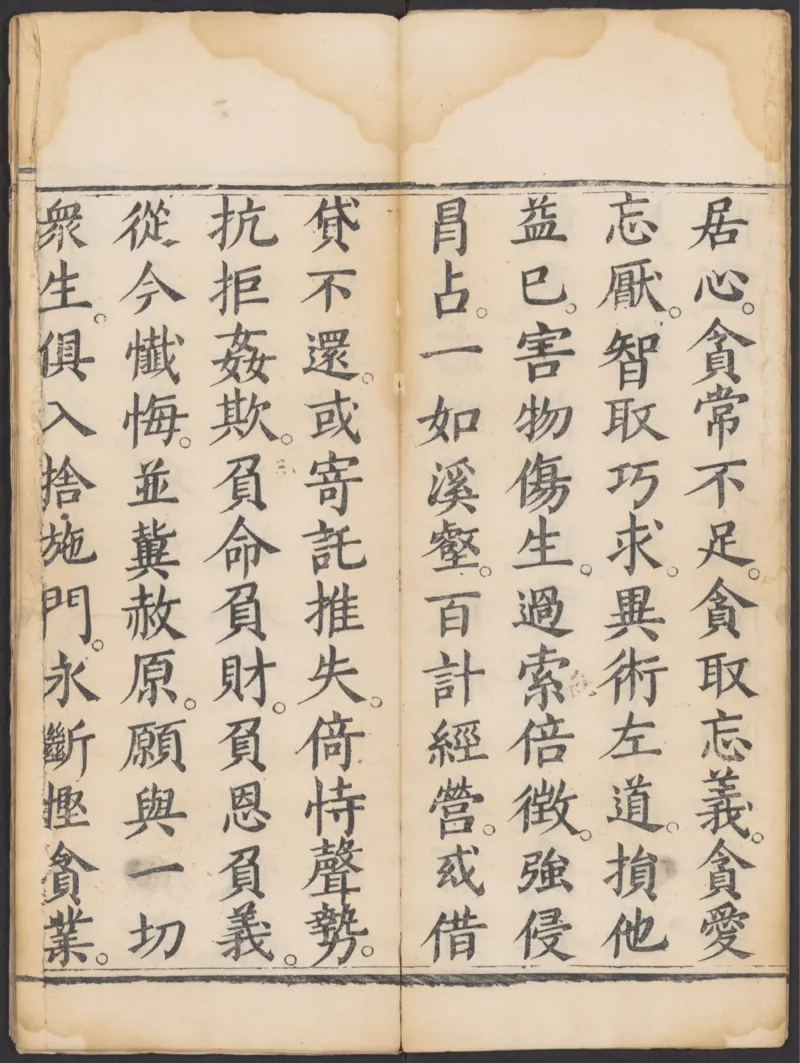 居心。貪常不足。貪取忘義。貪愛
忘厭。智取巧求。異術左道。損他
益已。害物傷生。過索倍徵。強侵
冐占。一如溪壑。百計經營。或借
貸不還。或寄託推失。倚恃聲勢。
抗拒姦欺。負命負財。負恩負義。
從今懺悔。並兾赦原。願與一切
衆生。俱入捨施門。永斷慳貪業。